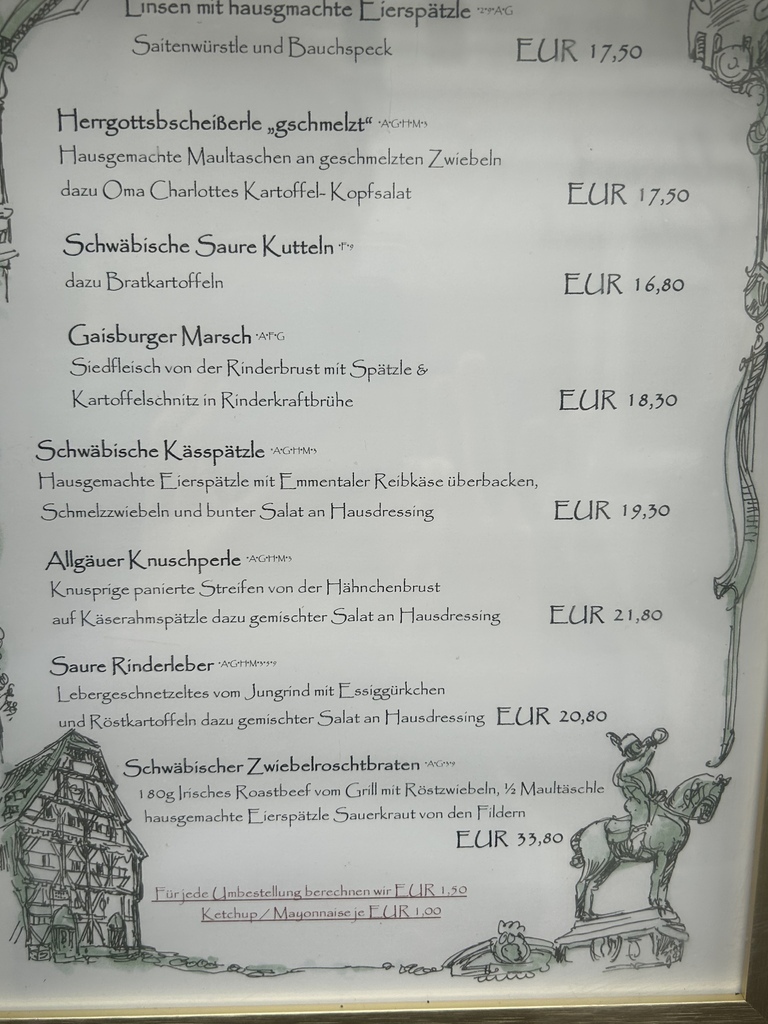 Linsen mit hausgmachte Eierspätzle
Saitenwürstle und Bauchspeck EUR 17,50
Herrgottsbscheißerle „gschmelzt“ •A•G•H•M•
Hausgemachte Maultaschen an geschmelzten Zwiebeln
dazu Oma Charlottes Kartoffel- Kopfsalat EUR 17,50
Schwäbische Saure Kutteln
dazu Bratkartoffeln EUR 16,80
Gaisburger Marsch •A•F•G
Siedfleisch von der Rinderbrust mit Spätzle &
Kartoffelschnitz in Rinderkraftbrühe EUR 18,30
Schwäbische Kässpätzle •A•G•H•M•
Hausgemachte Eierspätzle mit Emmentaler Reibkäse überbacken,
Schmelzzwiebeln und bunter Salat an Hausdressing EUR 19,30
Allgäuer Knuschperle •A•G•H•M•
Knusprige panierte Streifen von der Hähnchenbrust
auf Käserahmspätzle dazu gemischter Salat an Hausdressing EUR 21,80
Saure Rinderleber •A•G•H•M•
Lebergeschnetzeltes vom Jungrind mit Essiggürkchen
und Röstkartoffeln dazu gemischter Salat an Hausdressing EUR 20,80
Schwäbischer Zwiebelroschtbraten
180g Irisches Roastbeef vom Grill mit Röstzwiebeln, ½ Maultäschle
hausgemachte Eierspätzle Sauerkraut von den Fildern
EUR 33,80
Für jede Umbestellung berechnen wir EUR 1,50
Ketchup / Mayonnaise je EUR 1,00